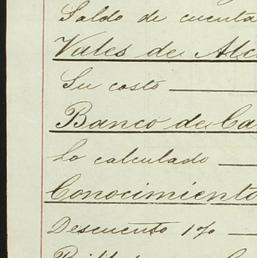 Saldo de cuenta
Vales de Alc
Su costo
Banco de Ca
Lo calculado
Conocimiento
Descuento 1%